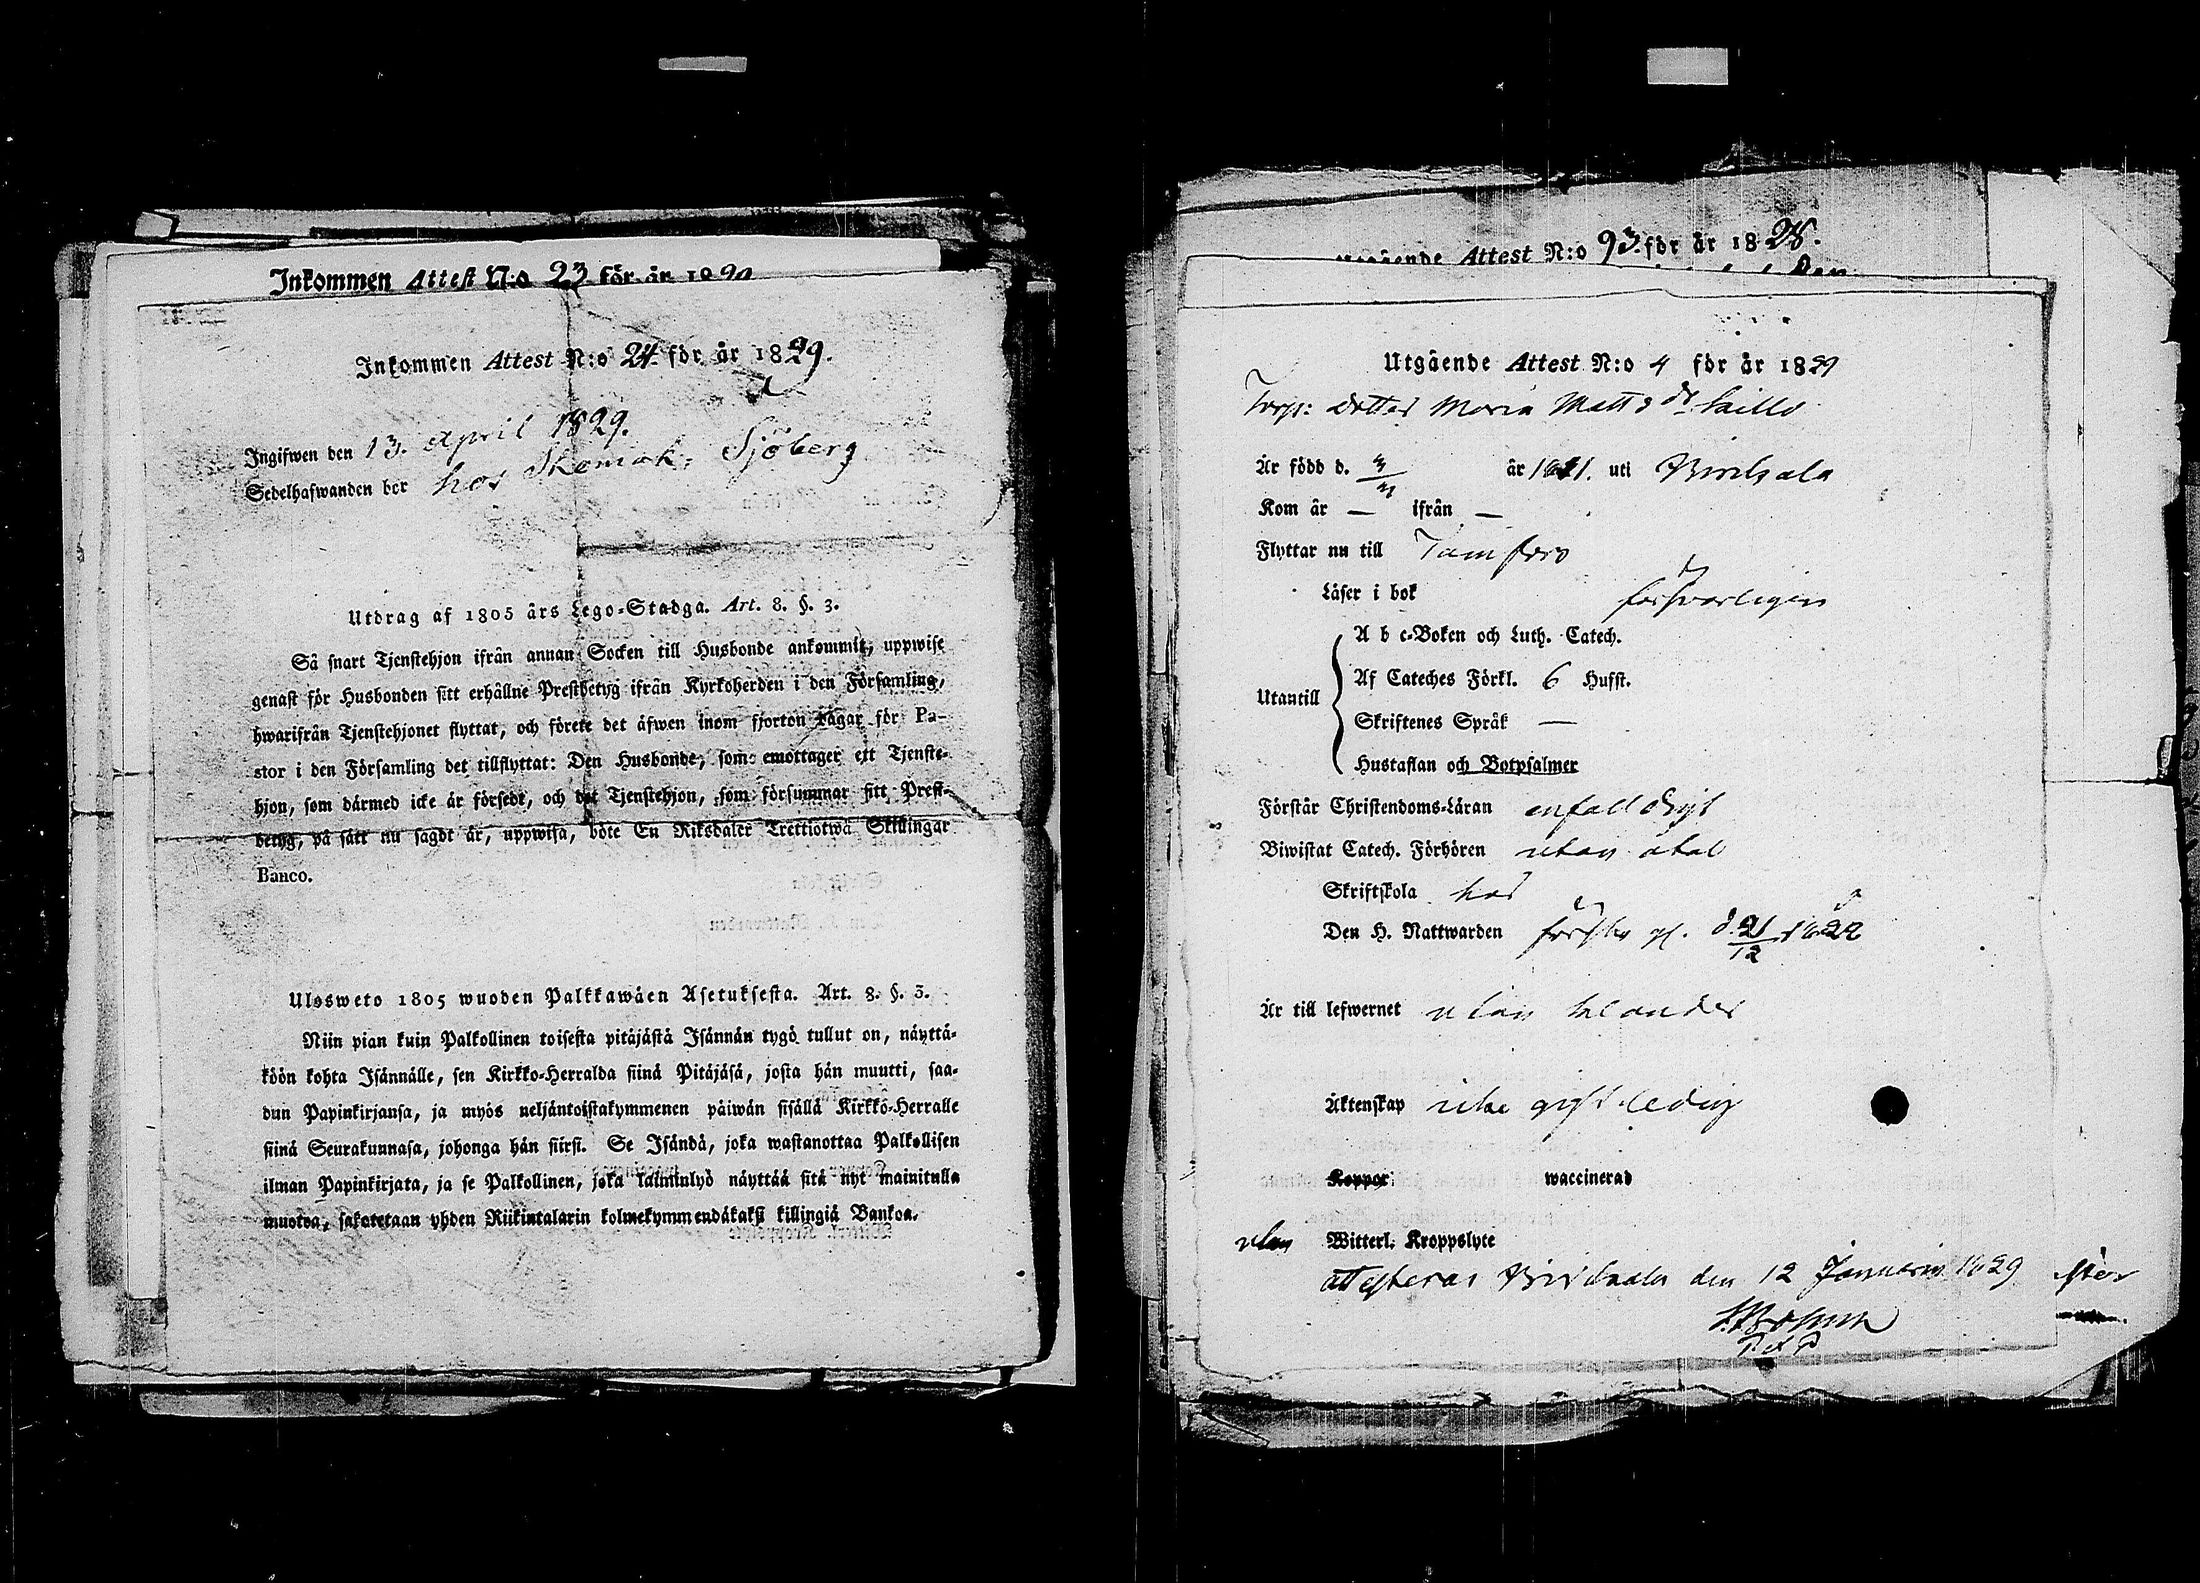 Inkommen Attest N:o 23 för år 1829
Inkommen Attest N:o 24 för år 1829.
Ingifwen den 13. April 1829.
Sedelhafwanden bor hos Skomak. Sjöberg
Utdrag af 1805 års Lego-Stadga. Art. 8. §. 3.
Så snart Tjenstehjon ifrån annan Socken till Husbonde ankommit, uppwise
genast för Husbonden sitt erhållne Prestbetyg ifrån Kyrkoherden i den Församling,
hwarifrån Tjenstehjonet flyttat, och förete det äfwen inom fjorton dagar för Pa-
stor i den Församling det tillflyttat: Den Husbonde, som emottager ett Tjenste-
hjon, som därmed icke är försedt, och det Tjenstehjon, som försummar sitt Prest-
betyg, på sätt nu sagdt är, uppwisa, böte En Riksdaler Trettiotwå Skillingar
Banco.
Ulosweto 1805 wuoden Palkkawäen Asetuksesta. Art. 8. §. 3.
Niin pian kuin Palkollinen toisesta pitäjästä Isännän tygö tullut on, näyttä-
köön kohta Isännälle, sen Kirkko-Herralda siinä Pitäjäsä, josta hän muutti, saa-
dun Papinkirjansa, ja myös neljäntoistakymmenen päiwän sisällä Kirkko-Herralle
siinä Seurakunnasa, johonga hän siirsi. Se Isändä, joka wastanottaa Palkollisen
ilman Papinkirjata, ja se Palkollinen, joka laiminlyö näyttää sitä nyt mainitulla
muotoa, sakotetaan yhden Riikintalarin kolmekymmendäkaksi killingiä Bankoa.
Utgående Attest N:o 93 för år 1828.
Utgående Attest N:o 4 för år 1829
Torp: dotter Maria Matts dr
År född d. år 1811. uti Birckala
Kom år — ifrån —
Flyttar nu till Tamfors
Läser i bok försvarligen
A b c-Boken och Luth. Catech.
Af Cateches Förkl. 6 Hufst.
Utantill
Skriftenes Språk —
Hustaflan och Botpsalmer
Förstår Christendoms-Läran enfalldigt
Biwistat Catech. Förhören utan åtal
Skriftskola
Den H. Nattwarden första g. d. 21/12 1822
Är till lefwernet utan klander
Äktenskap icke gift. ledig
Koppor waccinerad
utan Witterl. Kroppslyte
attesteras Birckala den 12 Januarii 1829